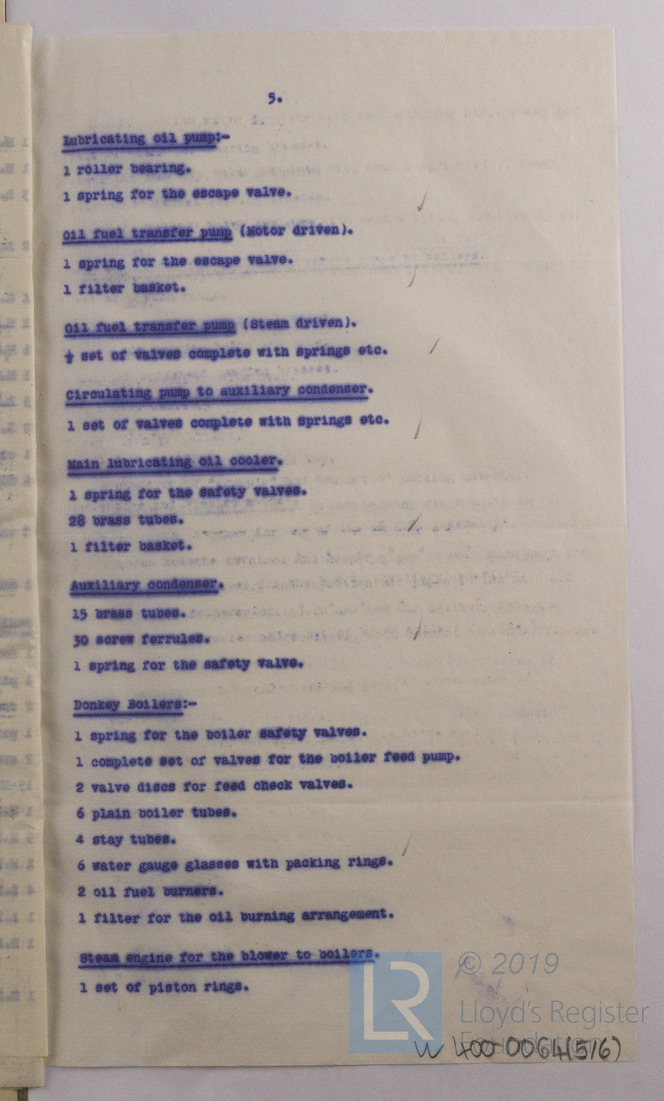 5.
Lubricating oil pump:-
1 roller bearing.
1 spring for the escape valve.
Oil fuel transfer pump (Motor driven).
1 spring for the escape valve.
1 filter basket.
Oil fuel transfer pump (Steam driven).
set of valves complete with springs etc.
Circulating pump to auxiliary condenser.
1 set of valves complete with springs etc.
Main lubricating oil cooler.
1 spring for the safety valves.
28 brass tubes.
1 filter basket.
Auxiliary condenser.
15 brass tubes.
30 screw ferrules.
1 spring for the safety valve.
Donkey Boilers:-
1 spring for the boiler safety valves.
1 complete set of valves for the boiler feed pump.
2 valve discs for feed check valves.
6 plain boiler tubes.
4 stay tubes.
6 water gauge glasses with packing rings.
2 oil fuel burners.
1 filter for the oil burning arrangement.
Steam engine for the blower to boilers.
1 set of piston rings.
LR
© 2019
Lloyd's Register
Foundation
W400-0064(5/6)